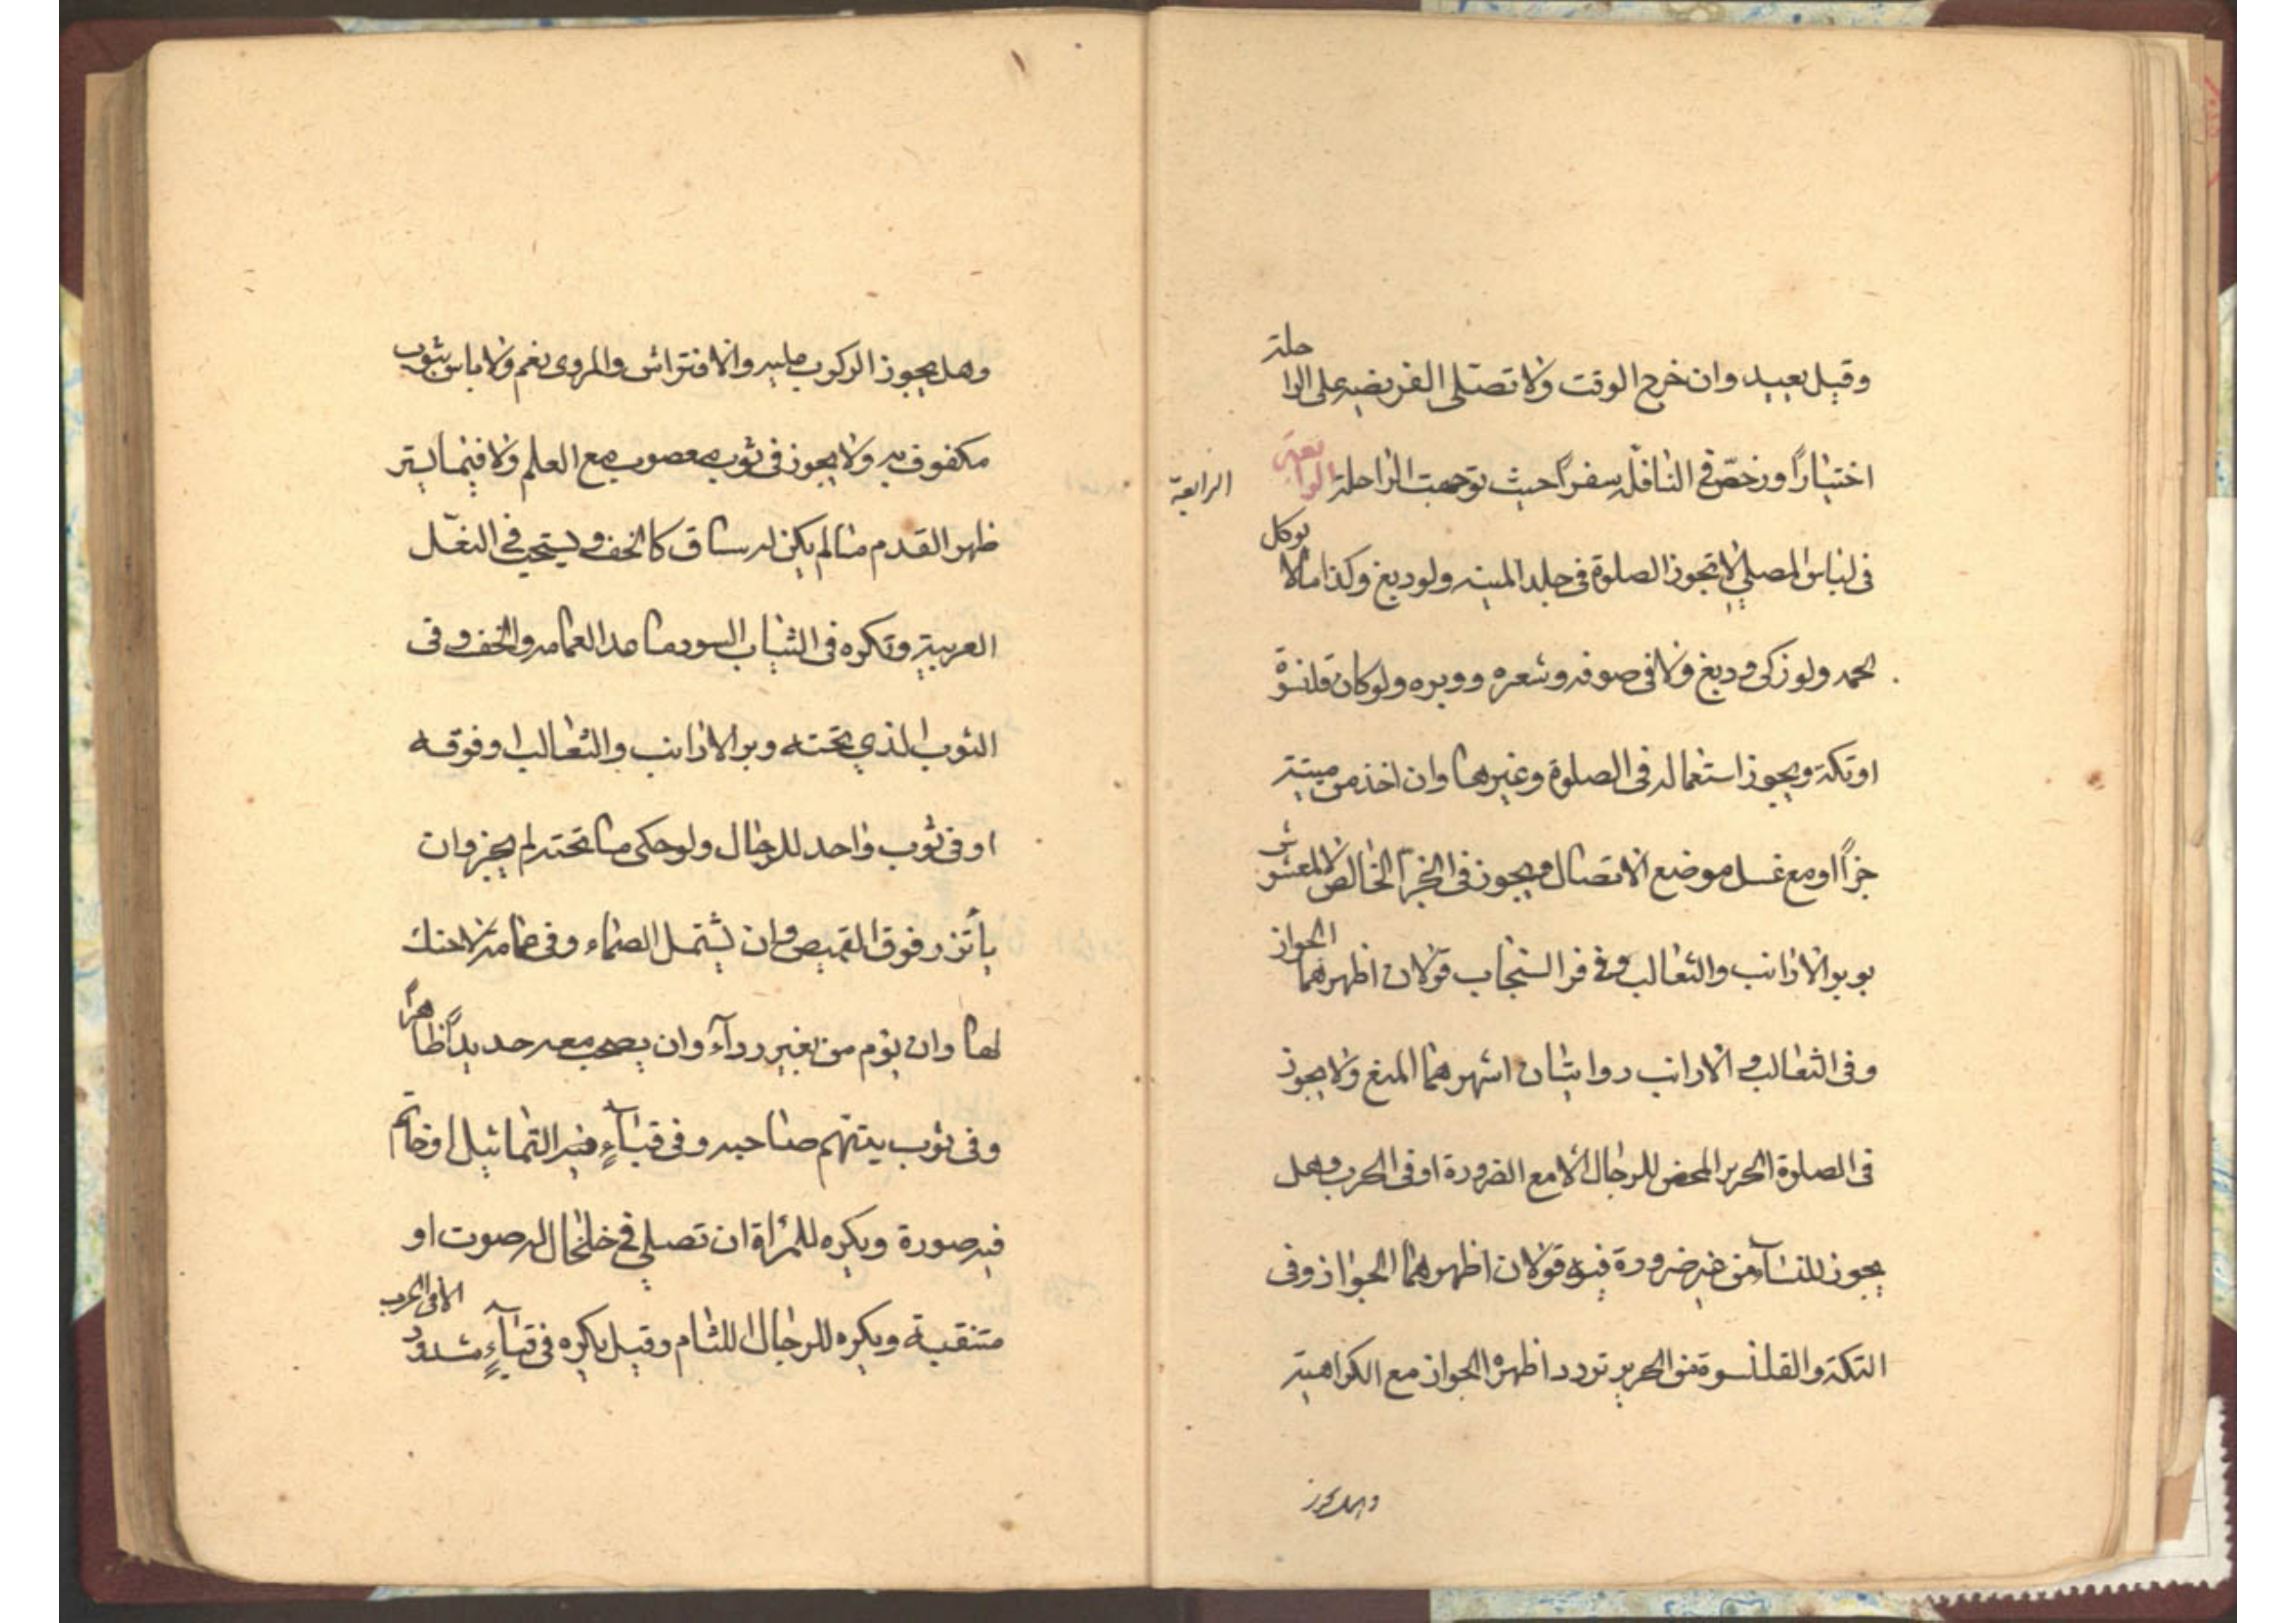 وقيل يعيد وان خرج الوقت ولا تصلى الفريضه على الراحلة
اختيارًا ورخّص في النافلة سفرًا حيث توجهت الراحلة الرابعة
الرابعة
فى لباس المصلي لا تجوز الصلوة فى جلد الميته ولو دبغ وكذا ما لا يوكل
لحمه ولو زكى ودبغ ولا فى صوفه وشعره ووبره ولو كان قلنسوة
او تكة ويجوز استعماله فى الصلوة وغيرها وان اخذ من ميتة
جزًا او مع غسل موضع الاتصال ويجوز فى الخز الخالص لا المغشوش
بوبر الارانب والثعالب وفى فرو السنجاب قولان اظهرهما الجواز
وفى الثعالب والارانب روايتان اشهرهما المنع ولا يجوز
فى الصلوة الحرير المحض للرجال الا مع الضرورة او فى الحرب وهل
يجوز للنسآء من غير ضرورة فيه قولان اظهرهما الجواز وفى
التكة والقلنسوة من الحرير تردد اظهره الجواز مع الكراهية
وهل يجوز
وهل يجوز الركوب عليه والافتراش والمروى نعم ولا باس بثوب
مكفوف به ولا يجوز فى ثوب مغصوب مع العلم ولا فيما يستر
ظهر القدم ما لم يكن له ساق كالخف ويستحب في النعّل
العربية وتكره فى الثياب السود ما عدا العمامه والخف وفى
الثوب الذي تحته وبر الارانب والثعالب او فوقه
او فى ثوب واحد للرجال ولو حكى ما تحته لم يجز وان
يأتزر فوق القميص وان يشتمل الصماء وفى عمامة لا حنك
لها وان يؤم من بغير ردآء وان يصحب معه حديدًا ظاهرًا
وفى ثوب يتهم صاحبه وفى قبآءٍ فيه التماثيل او خاتم
فيه صورة ويكره للمرأة ان تصلي في خلخال له صوت او
متنقبة ويكره للرجال اللثام وقيل يكره فى قبآءٍ مشدود الا فى الحرب